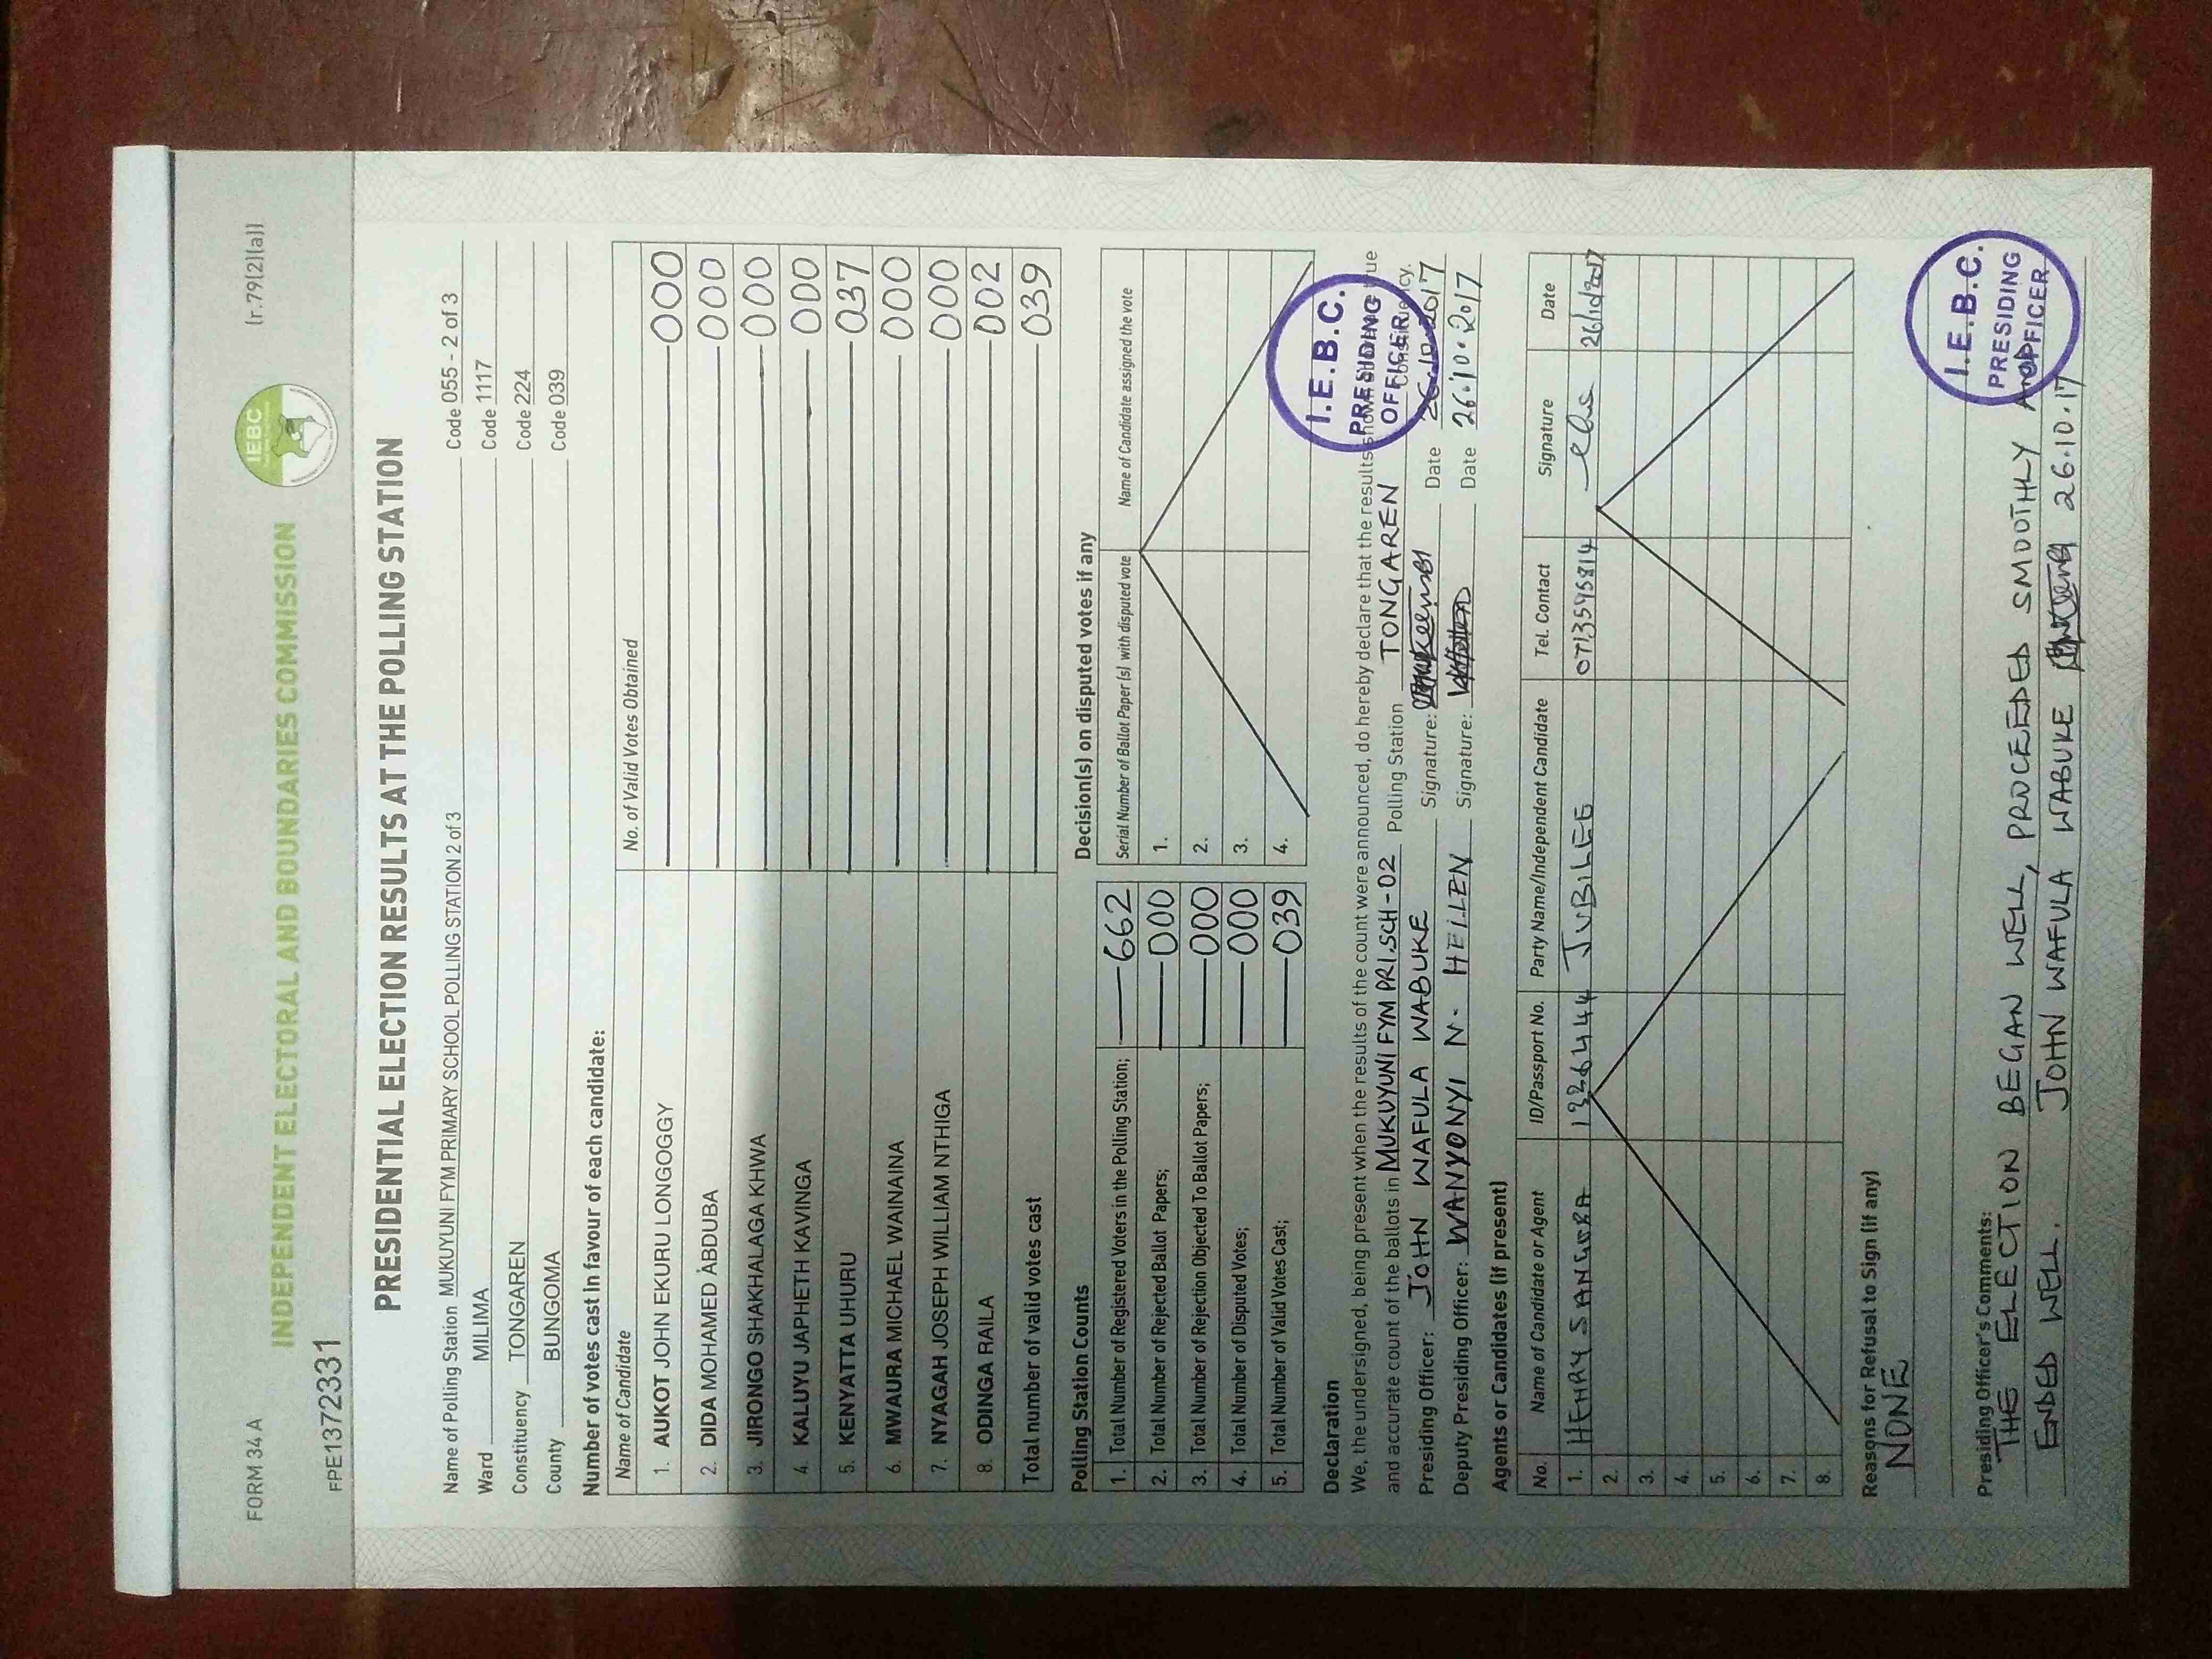 FORM 34 A
(r.79(2)(a))
IEBC
INDEPENDENT ELECTORAL AND BOUNDARIES COMMISSION
FPE1372331
PRESIDENTIAL ELECTION RESULTS AT THE POLLING STATION
Name of Polling Station MUKUYUNI FYM PRIMARY SCHOOL POLLING STATION 2 of 3 Code 055 - 2 of 3
Ward MILIMA Code 1117
Constituency TONGAREN Code 224
County BUNGOMA Code 039
Number of votes cast in favour of each candidate:
Name of Candidate No. of Valid Votes Obtained
1. AUKOT JOHN EKURU LONGOGGY 000
2. DIDA MOHAMED ABDUBA 000
3. JIRONGO SHAKHALAGA KHWA 000
4. KALUYU JAPHETH KAVINGA 000
5. KENYATTA UHURU 037
6. MWAURA MICHAEL WAINAINA 000
7. NYAGAH JOSEPH WILLIAM NTHIGA 000
8. ODINGA RAILA 002
Total number of valid votes cast 039
Polling Station Counts
1. Total Number of Registered Voters in the Polling Station; 662
2. Total Number of Rejected Ballot Papers; 000
3. Total Number of Rejection Objected To Ballot Papers; 000
4. Total Number of Disputed Votes; 000
5. Total Number of Valid Votes Cast; 039
Decision(s) on disputed votes if any
Serial Number of Ballot Paper (s) with disputed vote Name of Candidate assigned the vote
1.
2.
3.
4.
Declaration
We, the undersigned, being present when the results of the count were announced, do hereby declare that the results shown above are true
and accurate count of the ballots in MUKUYUNI FYM PRI.SCH-02 Polling Station TONGAREN Constituency.
Presiding Officer: JOHN WAFULA WABUKE Signature: Date 26.10.2017
Deputy Presiding Officer: WANYONYI N. HELLEN Signature: Date 26.10.2017
I.E.B.C.
PRESIDING
OFFICER
Agents or Candidates (if present)
No. Name of Candidate or Agent ID/Passport No. Party Name/Independent Candidate Tel. Contact Signature Date
1. HENRY SANGURA JUBILEE 0713595814 26/10/2017
2.
3.
4.
5.
6.
7.
8.
Reasons for Refusal to Sign (if any)
NONE
Presiding Officer's Comments:
THE ELECTION BEGAN WELL, PROCEEDED SMOOTHLY AND
ENDED WELL. JOHN WAFULA WABUKE 26.10.17
I.E.B.C.
PRESIDING
OFFICER